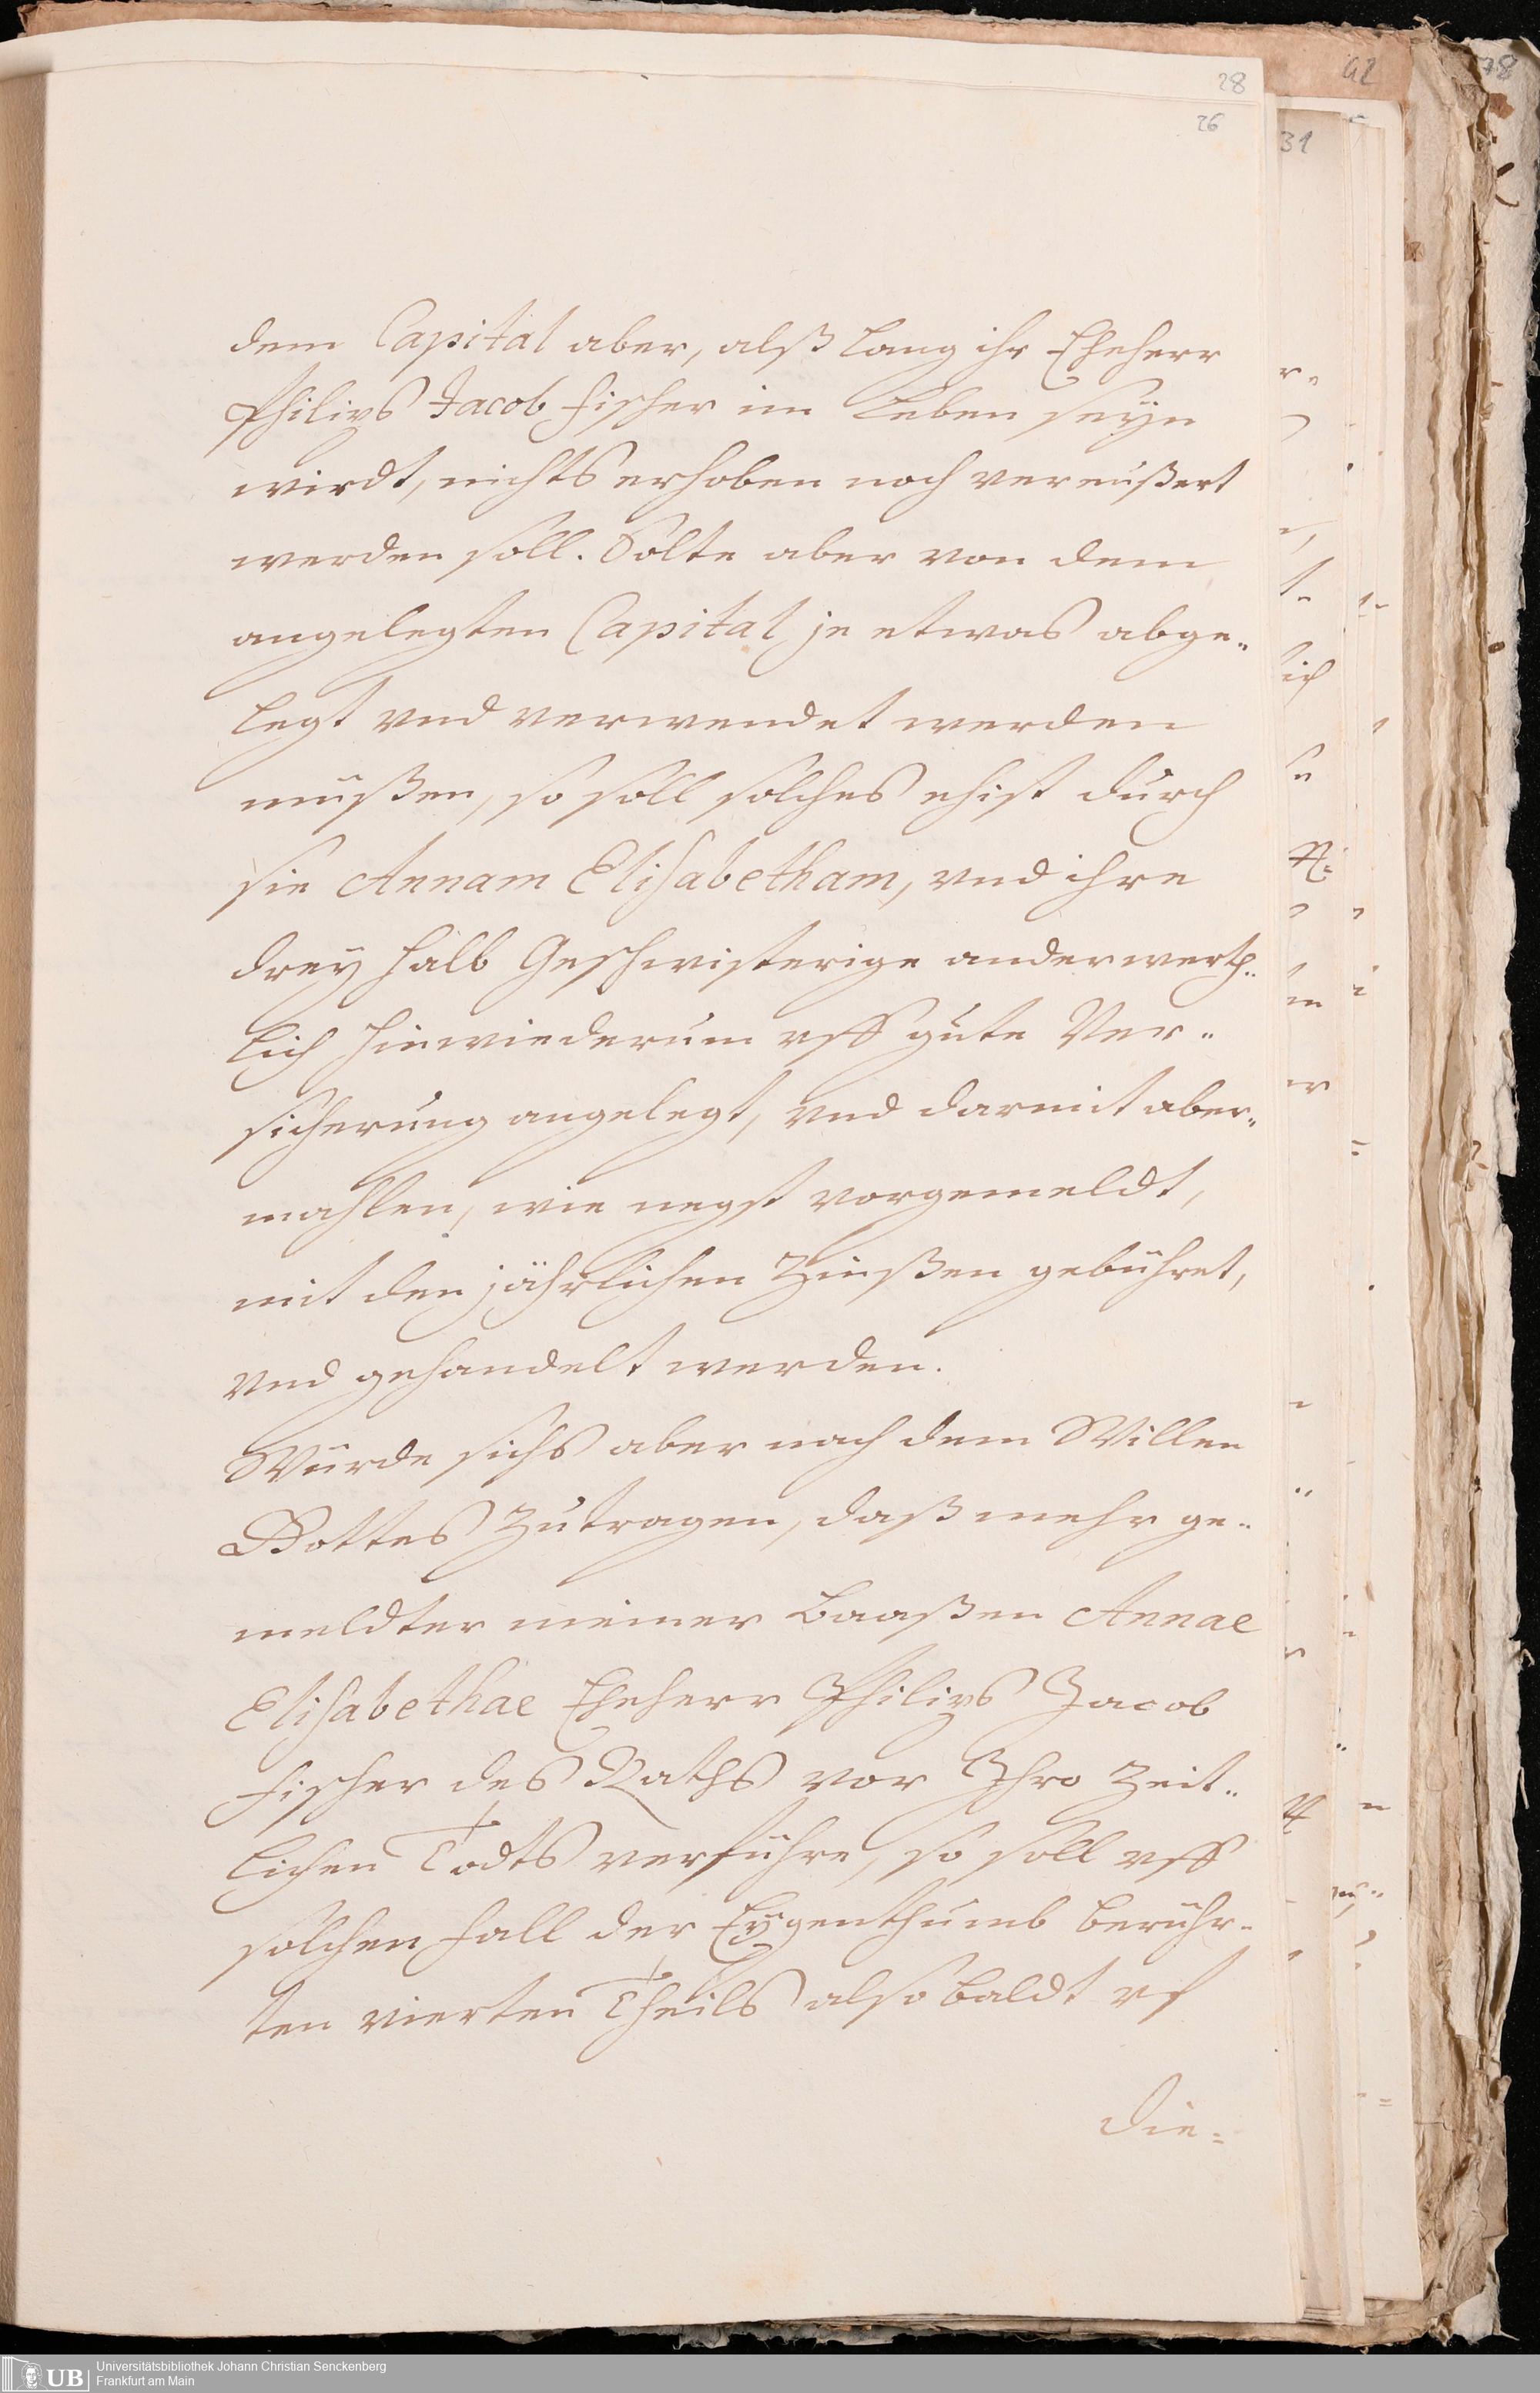 28
26
42
78
31
dem Capital aber, alß lang ihr Eheherr
Philips Jacob Fischer im Leben seyn
wirdt, nichts erhoben noch vereußert
werden soll. Solte aber von dem
angelegten Capital je etwas abge-
legt vnd verwendet werden
müßen, so soll solches ehist durch
sie Annam Elisabetham, vnd ihre
drey halb Geschwisterige anderwerth-
lich hinwiederum vff gute Ver-
sicherung angelegt, vnd darmit aber-
mahlen, wie negst vorgemeldt,
mit den jährlichen Zinßen gebühret,
vnd gehandelt werden.
Würde sichs aber nach dem Willen
Gottes zutragen, daß mehr ge-
meldter meiner Baaßen Annae
Elisabethae Eheherr Philips Jacob
Fischer des Raths vor Ihro zeit-
lichen Todts verführe, so soll vff
solchen Fall der Eygenthumb berühr-
ten vierten Theils alsobaldt vf
die-
UB
Universitätsbibliothek Johann Christian Senckenberg
Frankfurt am Main